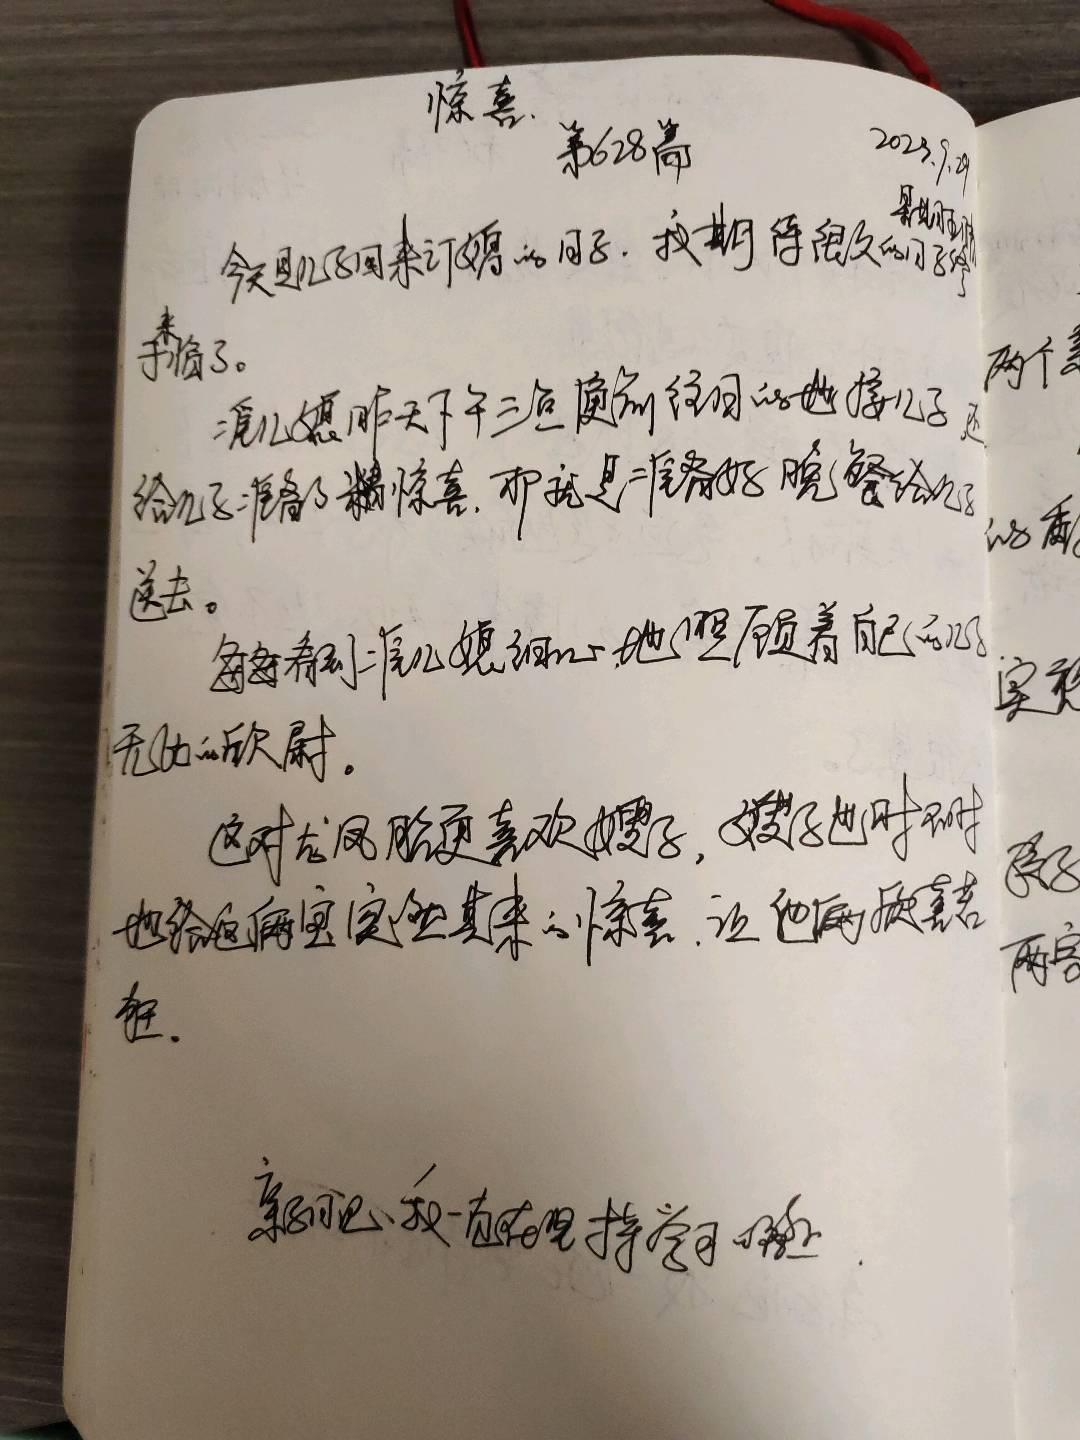 惊喜.
第628篇
2023.9.29
星期五 晴
今天是儿子回来订婚的日子.我期待很久的日子终
来
于临了。
准儿媳昨天下午三点更前往目的地接儿子 还
给儿子准备了惊喜.那就是准备好晚餐给儿子
送去。
每每看到准儿媳细心地照顾着自己的儿子
无比的欣尉。
这对龙凤胎更喜欢嫂子，嫂子也时不时
地给俩宝突然其来的惊喜.让他俩欣喜若
狂.
亲子日记、我一直在坚持学习
两个
的
实
孩子
两